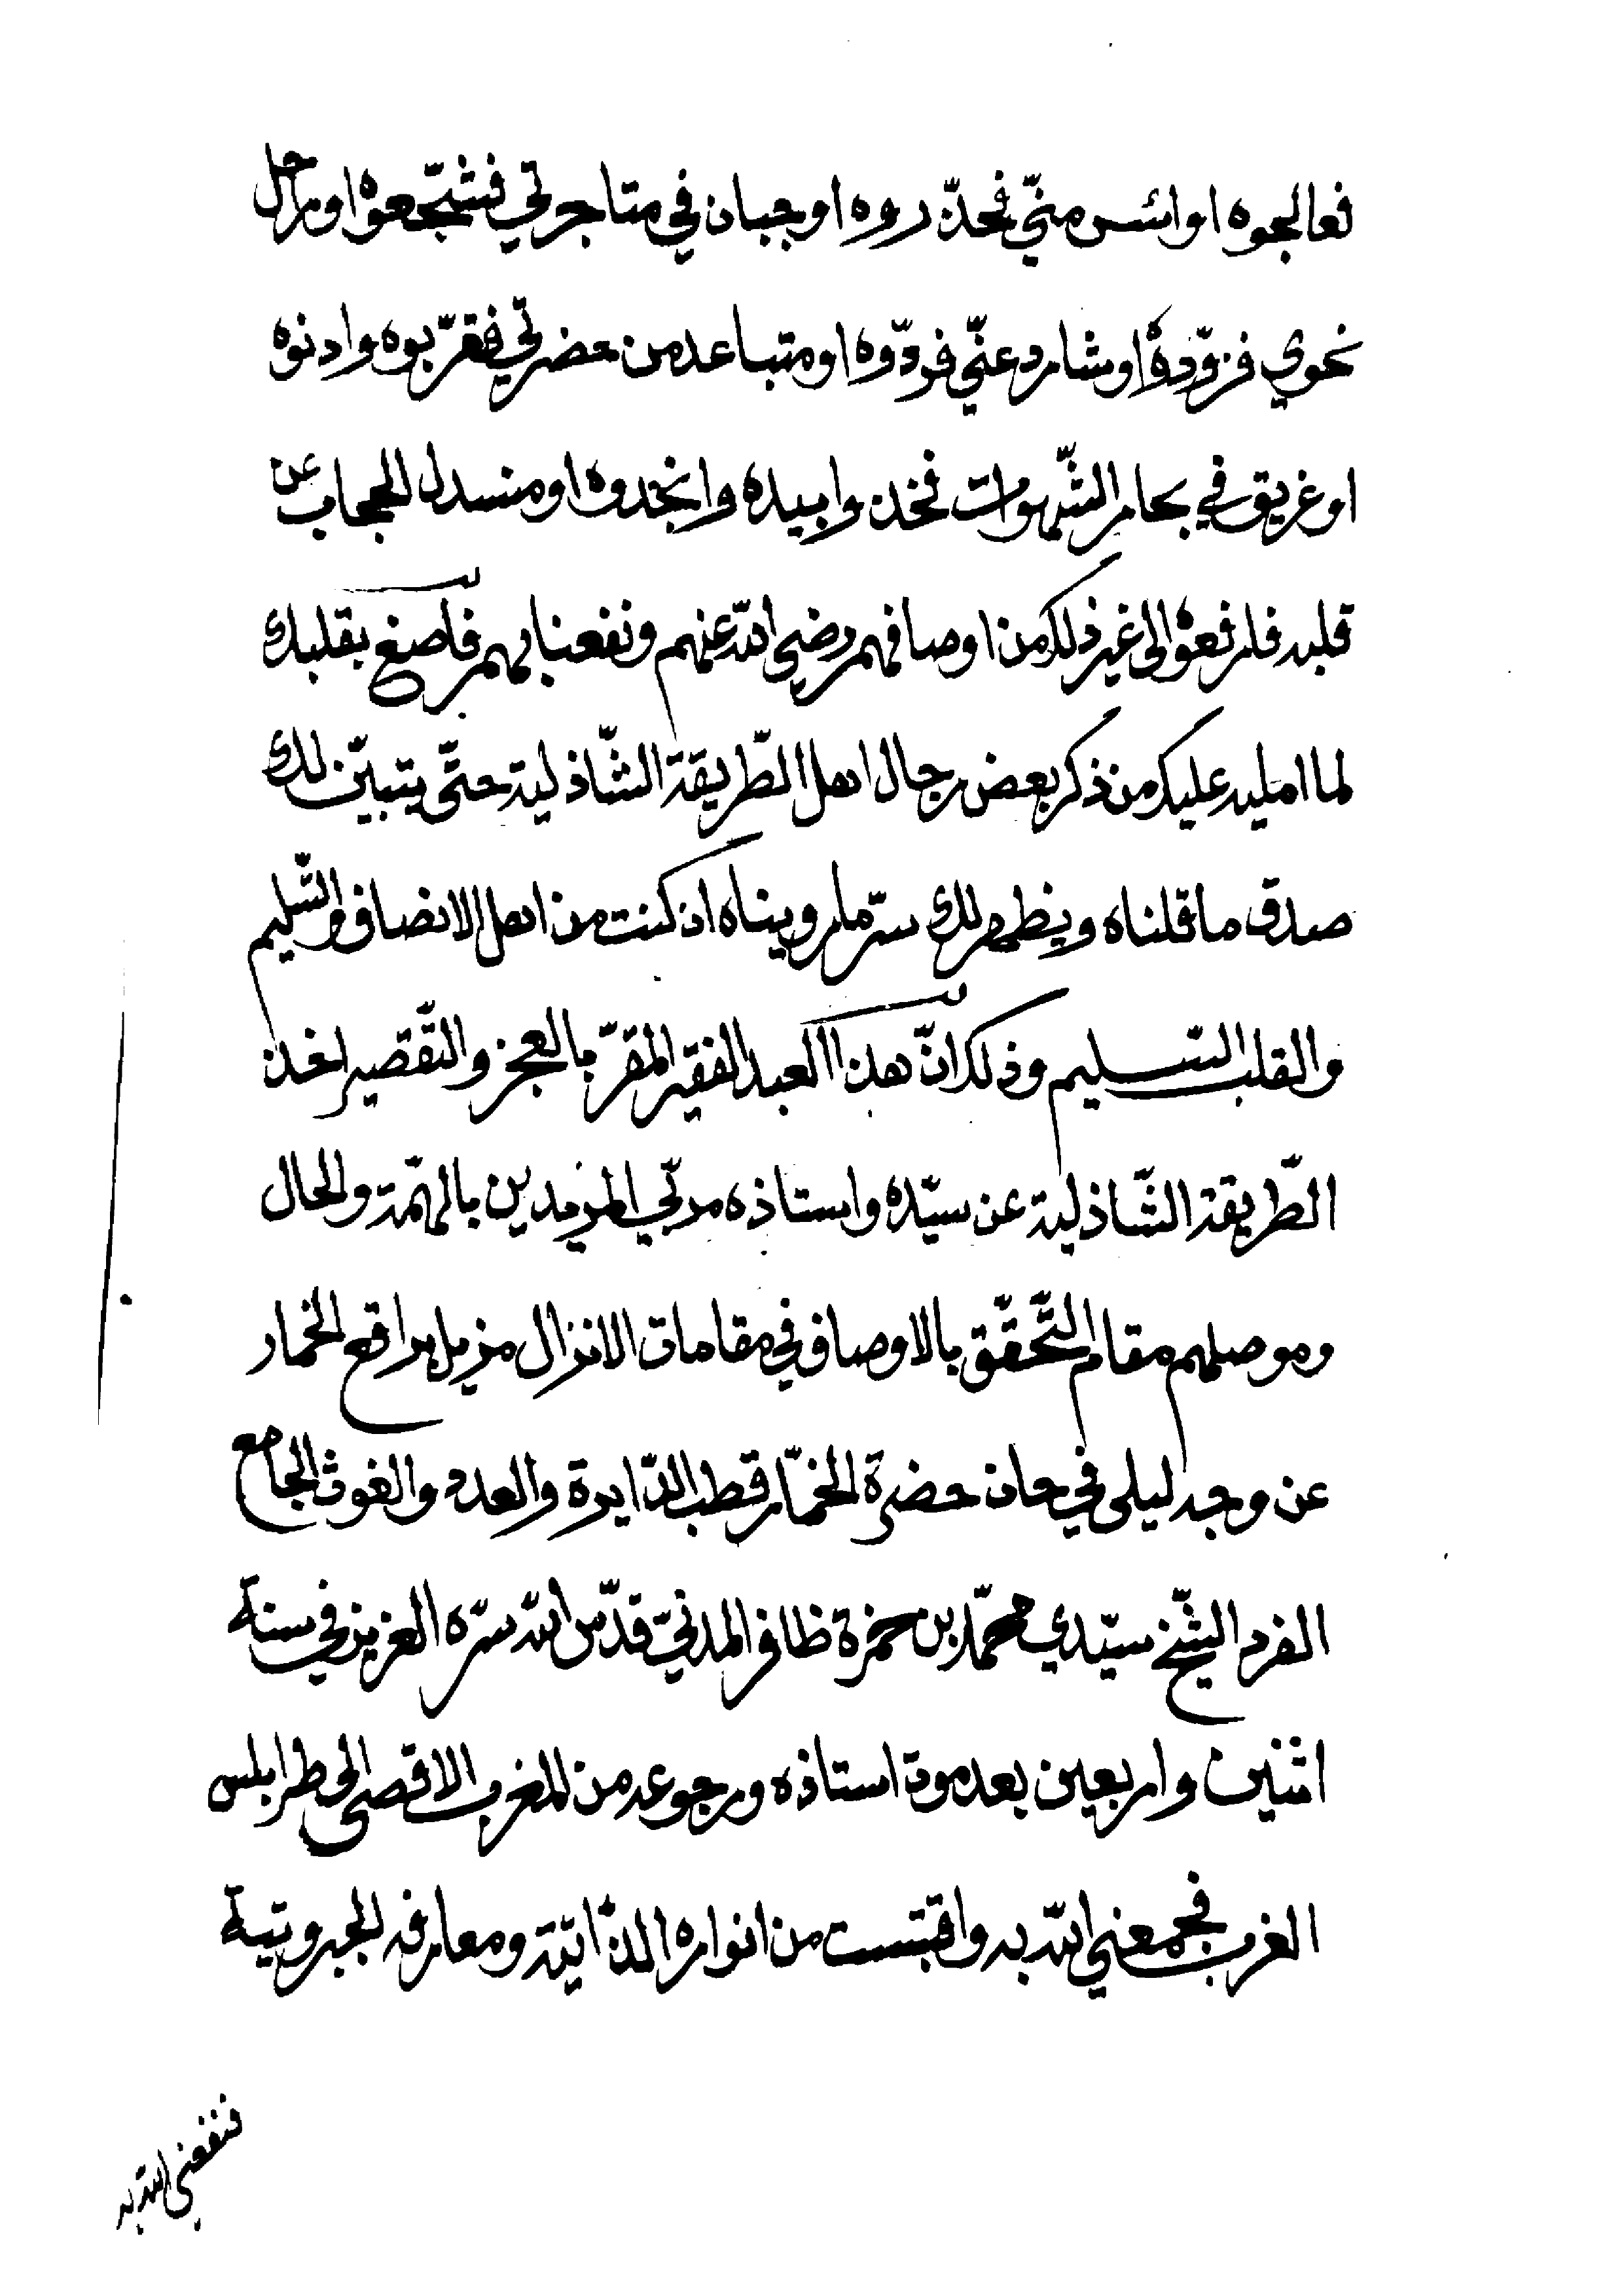 فعالجوه او ائس منّي فحذّروه او جبان في متاجرتي فشجّعوه او راحل
نحوي فزوّدوه او شارد عنّي فردّوه او متباعد من حضرتي فقرّبوه وادنوه
او غريق في بحار الشّهوات فخذوا بيده وانجدوه او منسدل الحجاب عن
قلبه فارفعوه الى غير ذلك من اوصافهم رضي الله عنهم ونفعنا بهم فاصغ بقلبك
لما امليه عليك من ذكر بعض رجال اهل الطّريقة الشّاذلية حتّى يتبيّن لك
صدق ما قلناه ويظهر لك سرّ ما رويناه اذ كنت من اهل الانصاف والتّسليم
والقلب السّليم وذلك انّ هذا العبد الفقير المقرّ بالعجز والتّقصير اخذ
الطّريقة الشّاذلية عن سيّده واستاذه مربّي المريدين بالهمّة والحال
وموصلهم مقام التّحقّق بالاوصاف في مقامات الانزال مزيل براقع الخمار
عن وجه ليلى في حان حضرة الخمّار قطب الدّايرة والعدد والغوث الجامع
الفرد الشّيخ سيّدي محمّد بن حمزة ظافر المدنيّ قدّس الله سرّه العزيز في سنة
اثنين واربعين بعد موت استاذه ورجوعه من المغرب الاقصى الى طرابلس
الغرب فجمعني الله به واقتبست من انواره الذّاتيّة ومعارفه الجبروتية
فنفعني الله به